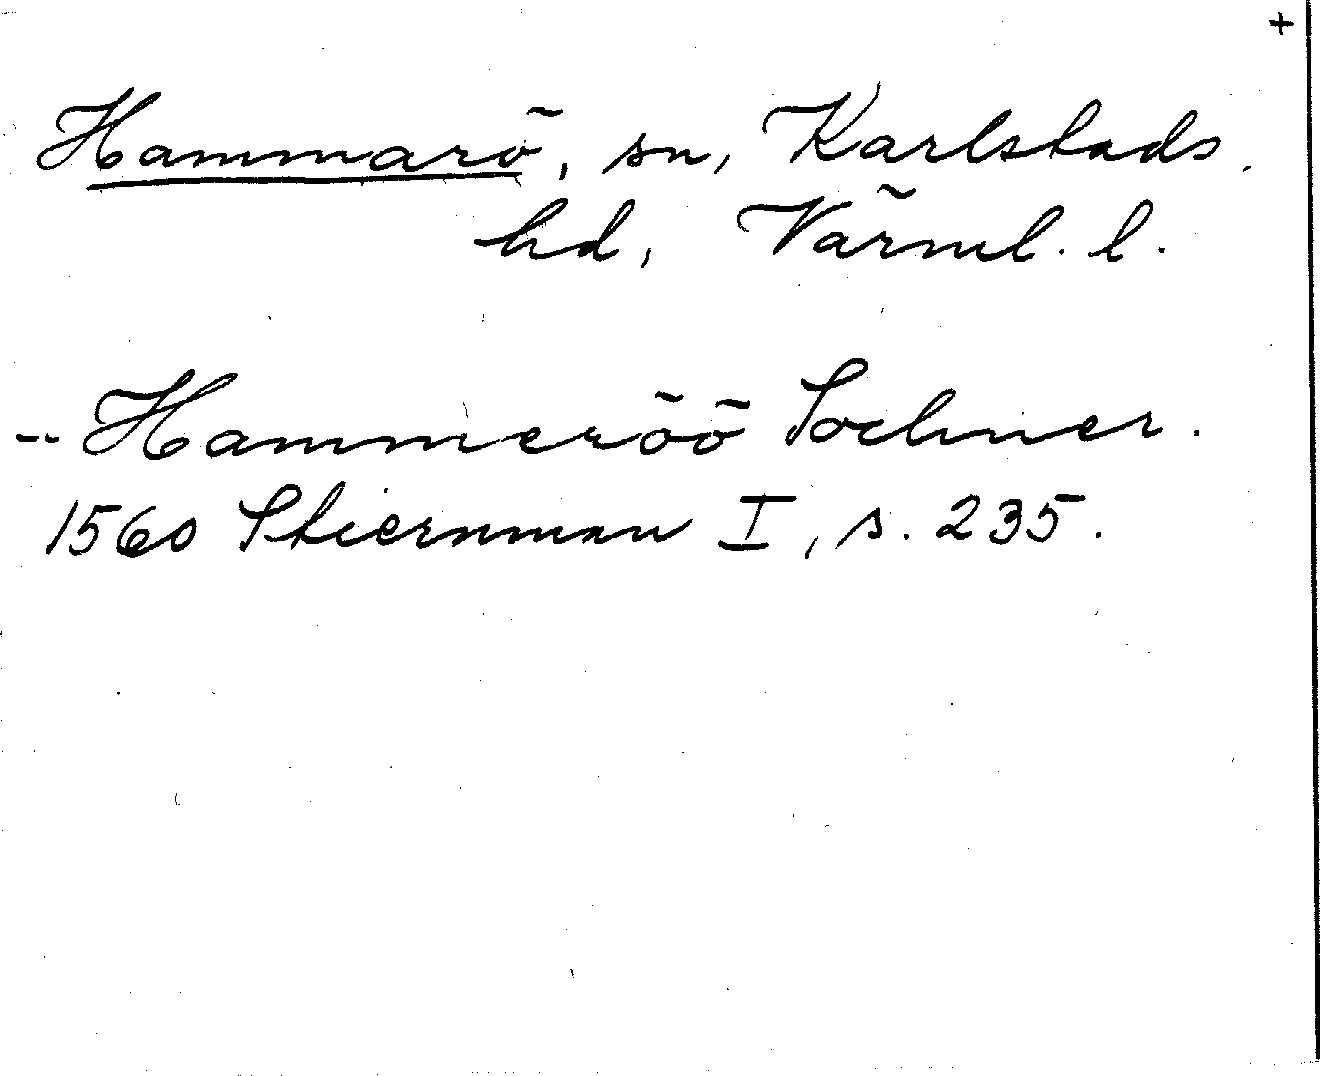 +
Hammarö, sn, Karlstads
hd, Värml. l.
-- Hammeröö Sochner.
1560 Stiernman I, s. 235.